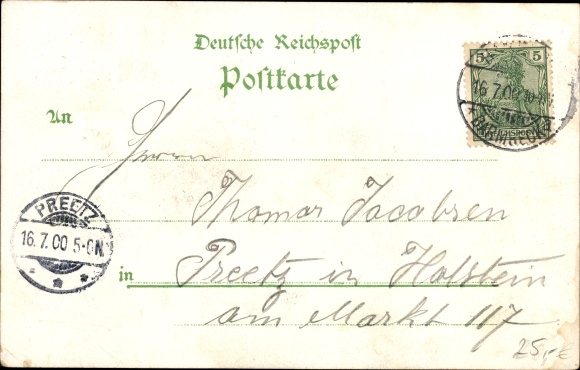 Deutsche Reichspost
Postkarte
5 5
16.7.00
REICHSPOST
An
Herrn
Thomas Jacobsen
PREETZ
16.7.00 5-6N.
in Preetz in Holstein
am Markt 117
25,-€